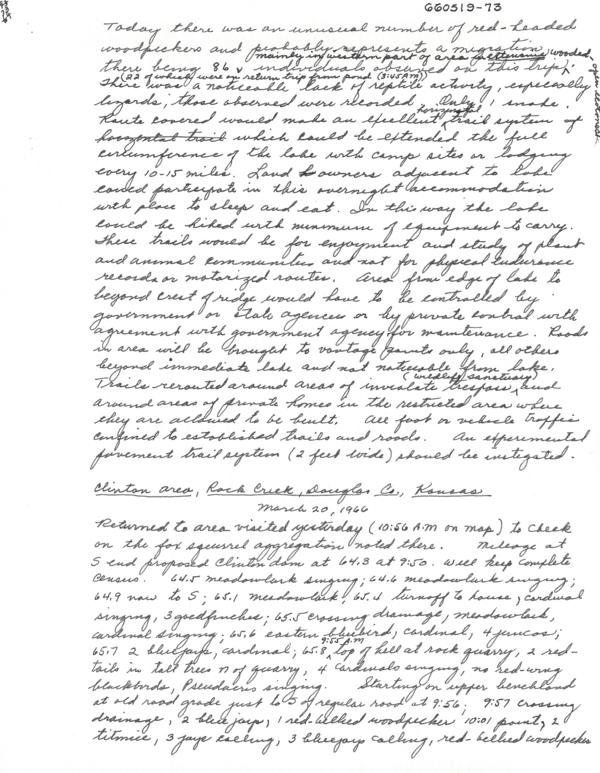 660519-73
Today there was an unusual number of red-headed
woodpeckers and probably represents a migration,
mainly in western part of area extensive wooded,
there being 86 individuals observed on this trip;
open sections
(22 of which were on return trip from pond (3:45 P.M.))
There was a noticeable lack of reptile activity, especially
lizards; those observed were recorded. Only 1 snake.
horizontal
Route covered would make an excellent trail system of
horizontal trail which could be extended the full
circumference of the lake with camp sites or lodging
every 10-15 miles. Land owners adjacent to lake
could participate in this overnight accommodation
with place to sleep and eat. In this way the lake
could be hiked with minimum of equipment to carry.
These trails would be for enjoyment and study of plant
and animal communities and not for physical endurance
records or motorized routes. Area from edge of lake to
beyond crest of ridge would have to be controlled by
government or state agencies or by private control with
agreement with government agency for maintenance. Roads
in area will be brought to vantage points only, all others
beyond immediate lake and not noticeable from lake.
(wildlife sanctuary)
Trails rerouted around areas of inviolate trespass and
around areas of private homes in the restricted area where
they are allowed to be built. All foot or vehicle traffic
confined to established trails and roads. An experimental
pavement trail system (2 feet wide) should be instigated.
Clinton area, Rock Creek, Douglas Co., Kansas
March 20, 1966
Returned to area visited yesterday (10:56 A.M on map) to check
on the fox squirrel aggregation noted there. Mileage at
S end proposed Clinton dam at 64.3 at 9:50. Will keep complete
census. 64.5 meadowlark singing; 64.6 meadowlark singing;
64.9 now to S; 65.1 meadowlark; 65.4 turnoff to house, cardinal
singing, 3 goldfinches; 65.5 crossing drainage, meadowlark,
cardinal singing; 65.6 eastern bluebird, cardinal, 4 juncos;
9:55 A.M
65.7 2 bluejays, cardinal; 65.8 top of hill at rock quarry, 2 red-
tails in tall trees N of quarry, 4 cardinals singing, no red-wing
blackbirds, Pseudacris singing. Starting on upper benchland
at old road grade just to S of regular road at 9:56; 9:57 crossing
drainage, 2 blue jays, 1 red-bellied woodpecker 10:01 point, 2
titmice, 3 jays calling, 3 bluejays calling, red-bellied woodpecker